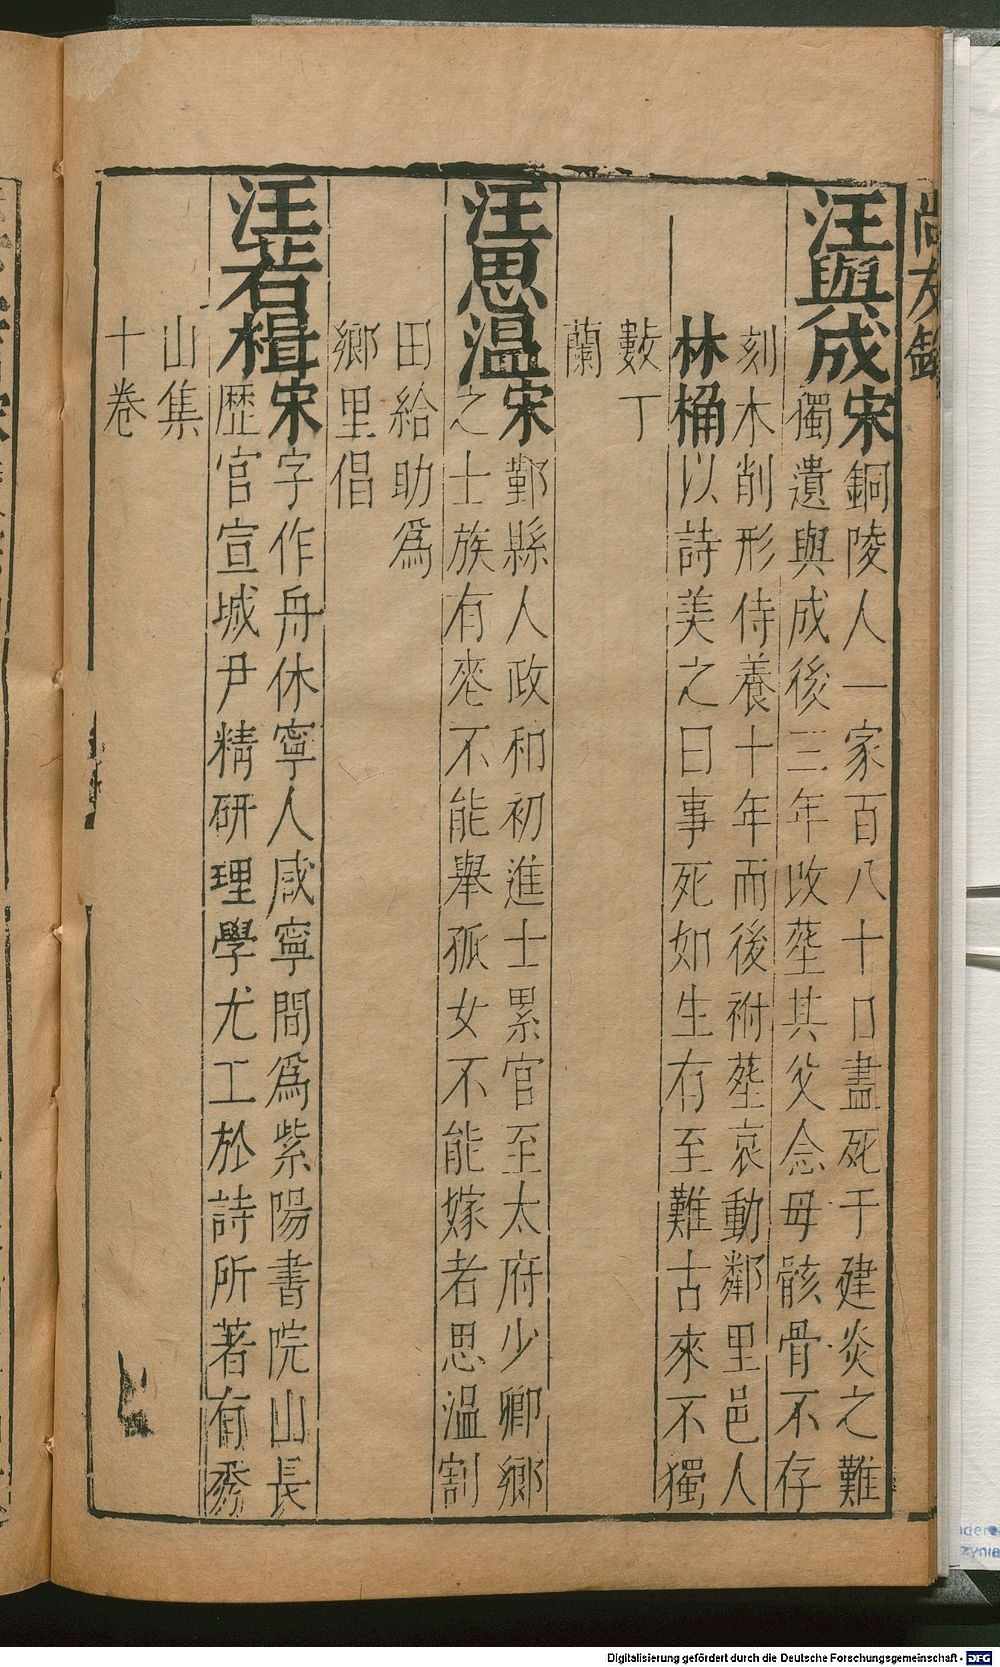 尚友錄
汪與成宋銅陵人一家百八十口盡死于建炎之難
獨遺與成後三年改塟其父念母骸骨不存
刻木削形侍養十年而後祔塟哀動鄰里邑人
林桷以詩美之曰事死如生存至難古來不獨
數丁
蘭
汪思温宋鄞縣人政和初進士累官至太府少卿鄉
之士族有喪不能舉孤女不能嫁者思温割
田給助爲
鄉里倡
汪若楫宋字作舟休寧人咸寧間爲紫陽書院山長
歷官宣城尹精研理學尤工於詩所著有秀
山集
十卷
Digitalisierung gefördert durch die Deutsche Forschungsgemeinschaft - DFG